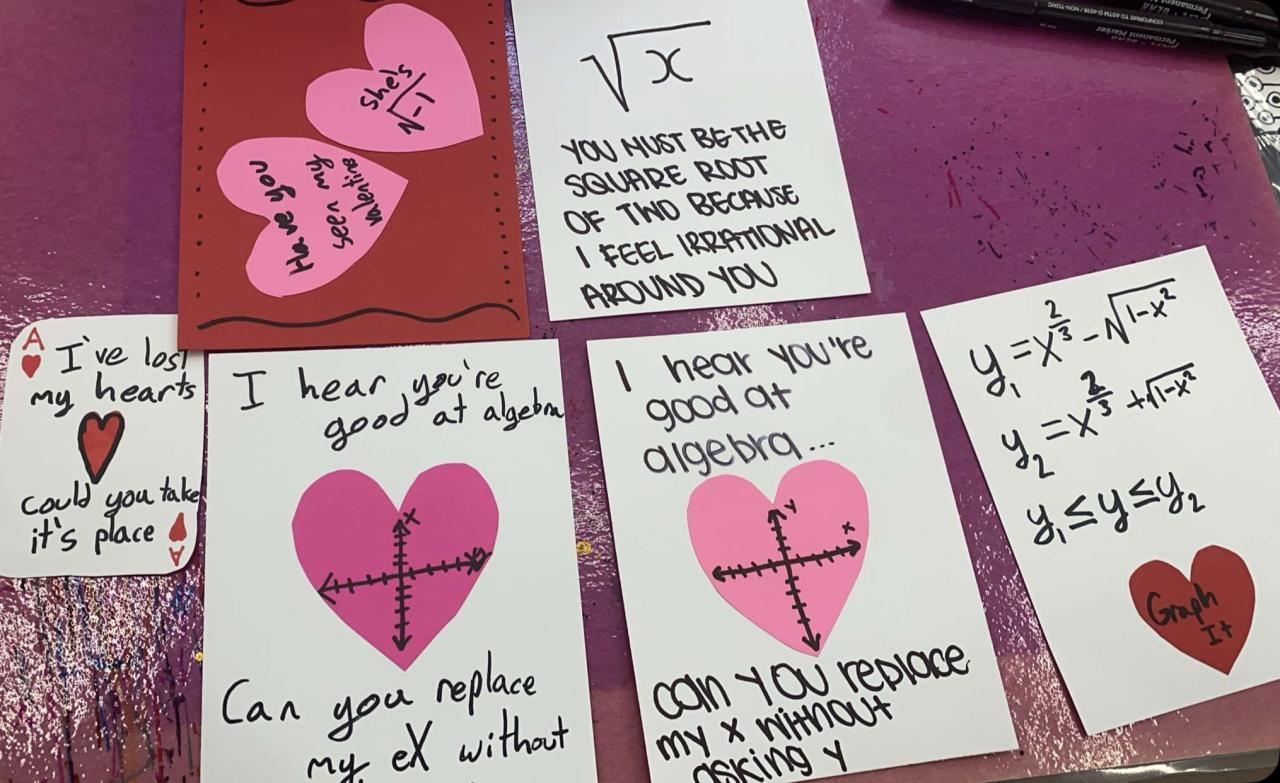 Have you
seen my
valentine
she's
√-1
√x
YOU MUST BE THE
SQUARE ROOT
OF TWO BECAUSE
I FEEL IRRATIONAL
AROUND YOU
CONFORMS TO ASTM D-4236 / NON-TOXIC
Permanent Marker
A
I've lost
my hearts
could you take
it's place
A
I hear you're
good at algebra
X
Can you replace
my eX without
I hear you're
good at
algebra...
Y
x
can YOU replace
my x without
asking y
y₁ = x^(2/3) - √(1-x²)
y₂ = x^(2/3) + √(1-x²)
y₁ ≤ y ≤ y₂
Graph
It